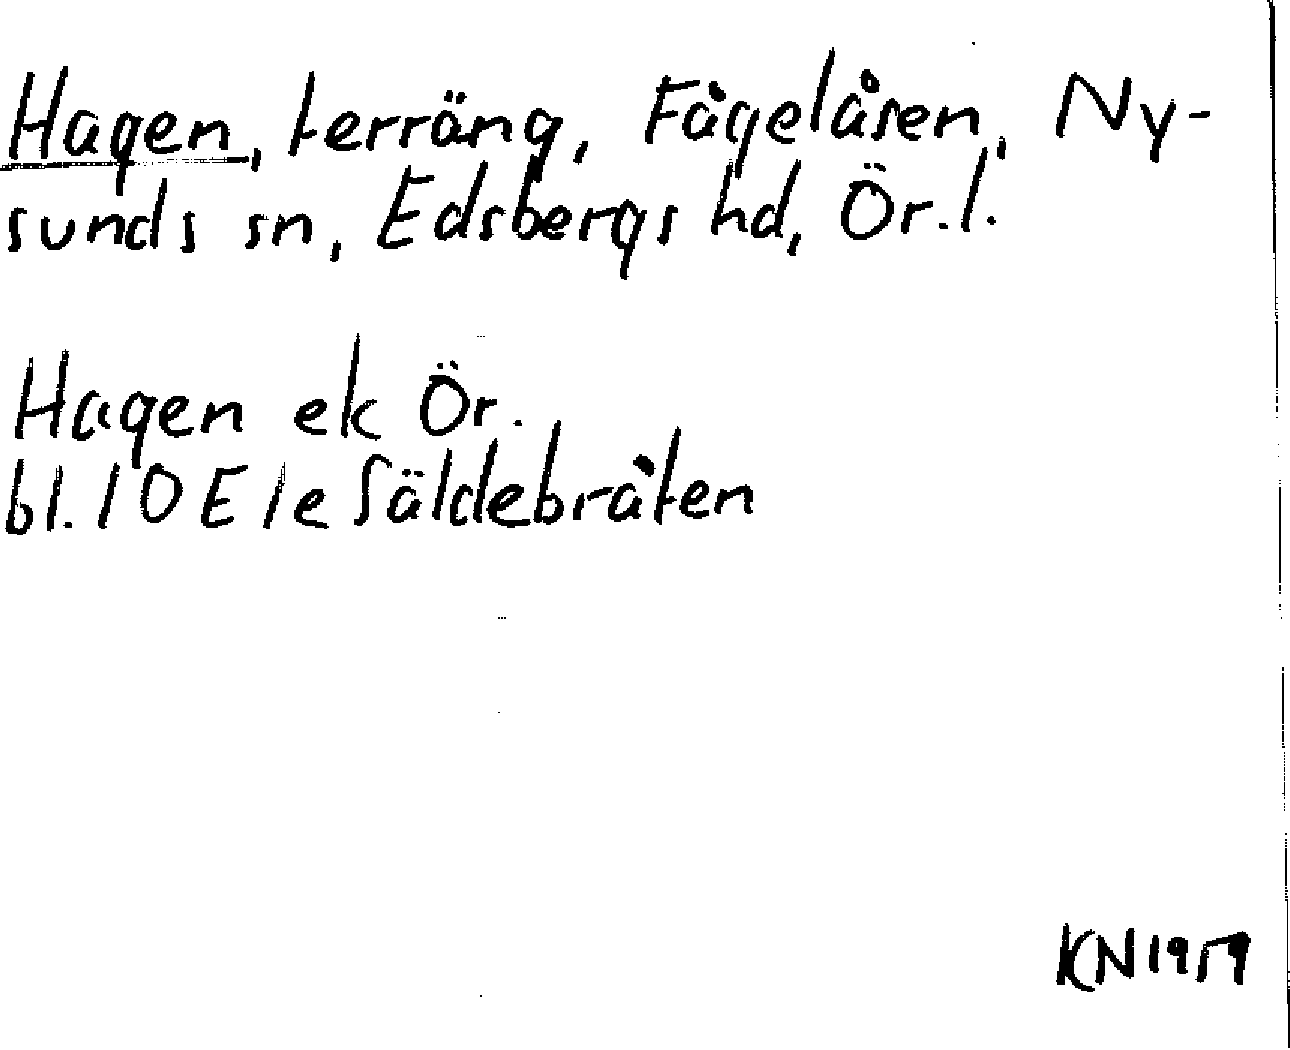 Hagen, terräng, Fågelåsen, Ny-
sunds sn, Edsbergs hd, Ör.l.
Hagen ek Ör.
bl. 10E 1e Säldebråten
KN 1959